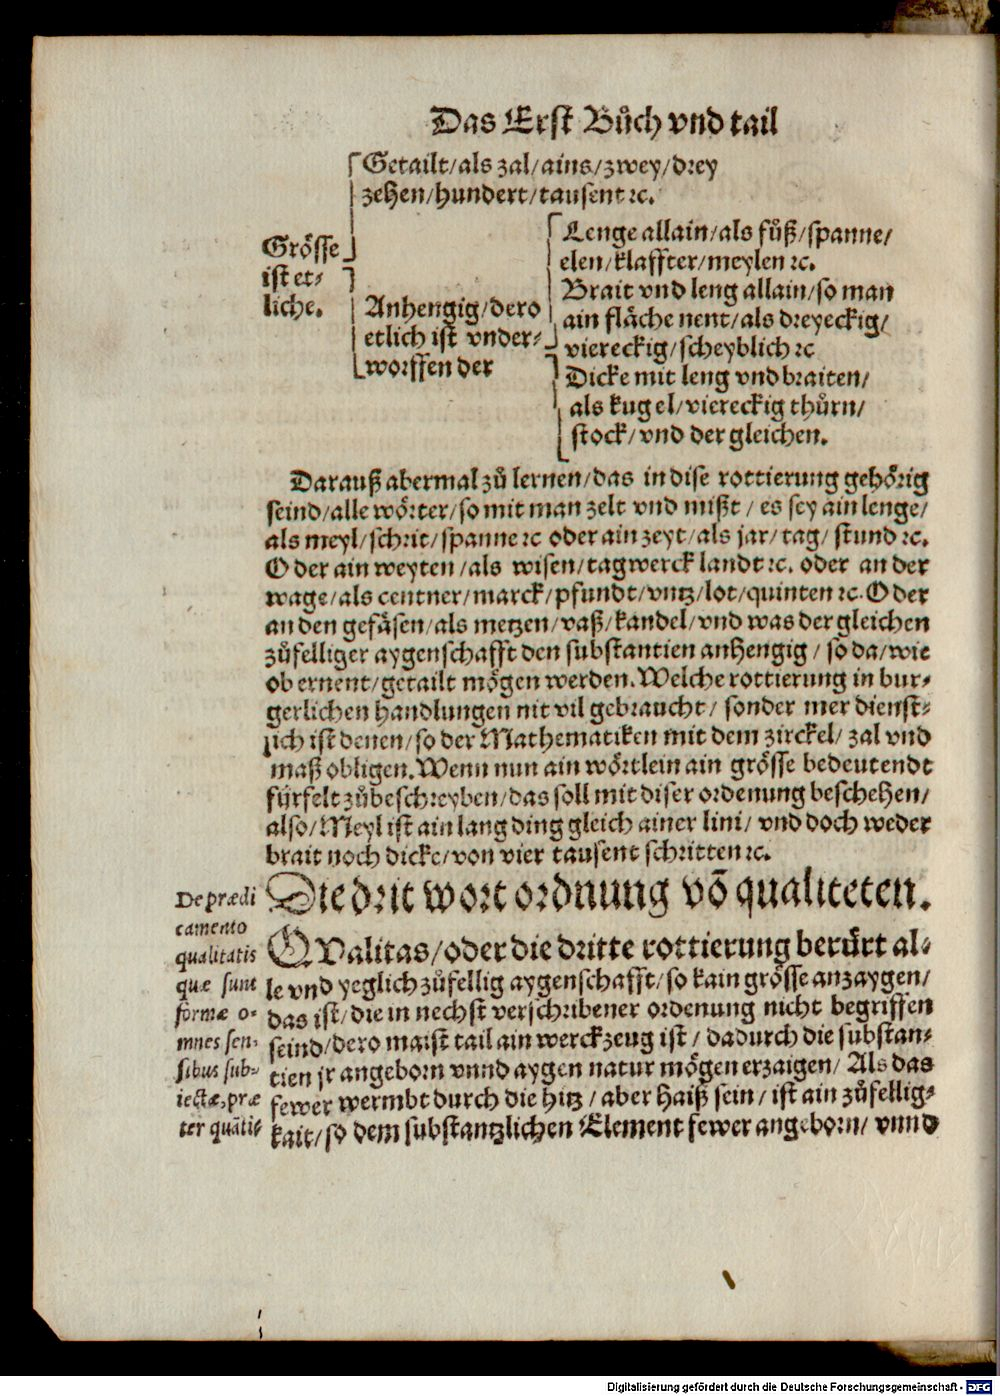 Das Erst Bůch vnd tail
Getailt/als zal/ains/zwey/drey
zehen/hundert/tausent ꝛc.
Grösse
ist et⸗
liche.
Anhengig/dero
etlich ist vnder⸗
worffen der
Lenge allain/als fůß/spanne/
elen/klaffter/meylen ꝛc.
Brait vnd leng allain/so man
ain fläche nent/als dreyeckig/
viereckig/scheyblich ꝛc
Dicke mit leng vnd braiten/
als kugel/viereckig thůrn/
stock/vnd der gleichen.
Darauß abermal zů lernen/das in dise rottierung gehörig
seind/alle wörter/so mit man zelt vnd mißt/es sey ain lenge/
als meyl/schrit/spanne ꝛc oder ain zeyt/als jar/tag/stund ꝛc.
Oder ain weyten/als wisen/tagwerck landt ꝛc. oder an der
wage/als centner/marck/pfundt/vntz/lot/quinten ꝛc. Oder
an den gefäsen/als metzen/vaß/kandel/vnd was der gleichen
zůfelliger aygenschafft den substantien anhengig/so da/wie
obernent/getailt mögen werden. Welche rottierung in bur⸗
gerlichen handlungen nit vil gebraucht/sonder mer dienst⸗
lich ist denen/so der Mathematiken mit dem zirckel/zal vnd
maß obligen. Wenn nun ain wörtlein ain grösse bedeutendt
fürfelt zůbeschreyben/das soll mit diser ordenung beschehen/
also/Meyl ist ain lang ding gleich ainer lini/vnd doch weder
brait noch dicke/von vier tausent schritten ꝛc.
Die drit wort ordnung võ qualiteten.
De prædi
camento
qualitatis
quæ sunt
formæ o-
mnes sen-
sibus sub-
iectæ, præ
ter quãti-
QValitas/oder die dritte rottierung berůrt al⸗
le vnd yeglich zůfellig aygenschafft/so kain grösse anzaygen/
das ist/die in nechst verschribener ordenung nicht begriffen
seind/dero maist tail ain werckzeug ist/dadurch die substan⸗
tien jr angeborn vnnd aygen natur mögen erzaigen/Als das
fewer wermbt durch die hitz/aber haiß sein/ist ain zůfellig⸗
kait/so dem substantzlichen Element fewer angeborn/vnnd
Digitalisierung gefördert durch die Deutsche Forschungsgemeinschaft - DFG